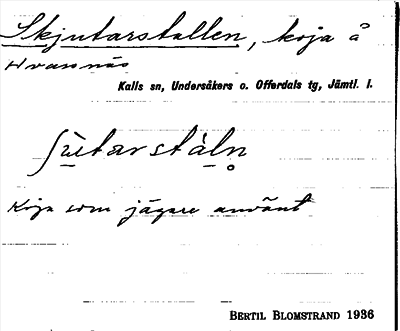 Skjutarstallen, koja å
Hvassnäs
Kalls sn, Undersåkers o. Offerdals tg, Jämtl. l.
ʃùtarstàln̥
Koja som jägare använt
BERTIL BLOMSTRAND 1936